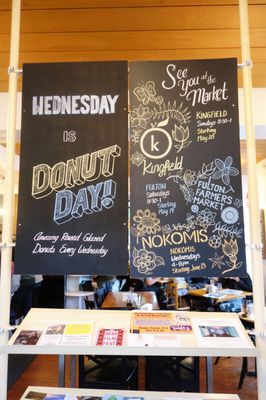 WEDNESDAY
IS
DONUT
DAY!
Amazing Raised Glazed
Donuts Every Wednesday
See You at the
Market
KINGFIELD
Sundays 8:30-1
Starting
May 20
k
Kingfield
FULTON
Saturdays
8:30-1
Starting
May 19
FULTON
FARMERS
MARKET
NOKOMIS
NOKOMIS
Wednesdays
4-8pm
Starting June 13